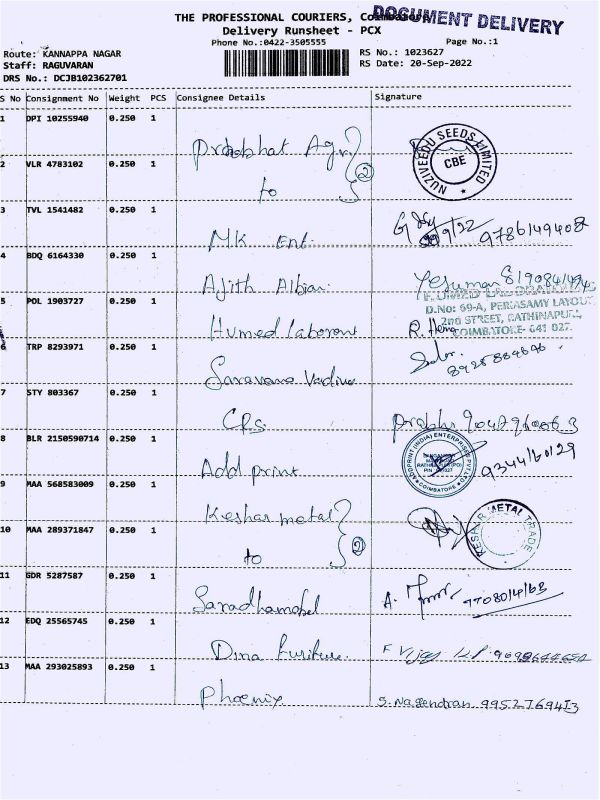 THE PROFESSIONAL COURIERS, Coimbatore
DOCUMENT DELIVERY
Delivery Runsheet - PCX
Phone No.:0422-3505555 Page No.:1
Route: KANNAPPA NAGAR RS No.: 1023627
Staff: RAGUVARAN RS Date: 20-Sep-2022
DRS No.: DCJB102362701
S No Consignment No Weight PCS Consignee Details Signature
1 DPI 10255940 0.250 1
Prabhat Agr NUZIVEEDU SEEDS LIMITED CBE
2 VLR 4783102 0.250 1 2
to
3 TVL 1541482 0.250 1
MK Ent. 9/22
4 BDQ 6164330 0.250 1
Ajith Albian Yesuman
5 POL 1903727 0.250 1 D.No: 69-A, PERIASAMY LAYOUT
2nd STREET, RATHINAPURI,
Humed R. COIMBATORE- 641 027.
6 TRP 8293971 0.250 1
Saravana
7 STY 803367 0.250 1
C.P.S. Prabhu
8 BLR 2150590714 0.250 1 ADDPRINT (INDIA) ENTERPRISES COIMBATORE
Add print 9344160129
9 MAA 568583009 0.250 1
Keshar metal KESHAR METAL TRADE
10 MAA 289371847 0.250 1 2
to
11 GDR 5287587 0.250 1
A.
12 EDQ 25565745 0.250 1
Vijay
13 MAA 293025893 0.250 1
Phoenix S. Nagendran 9952769413